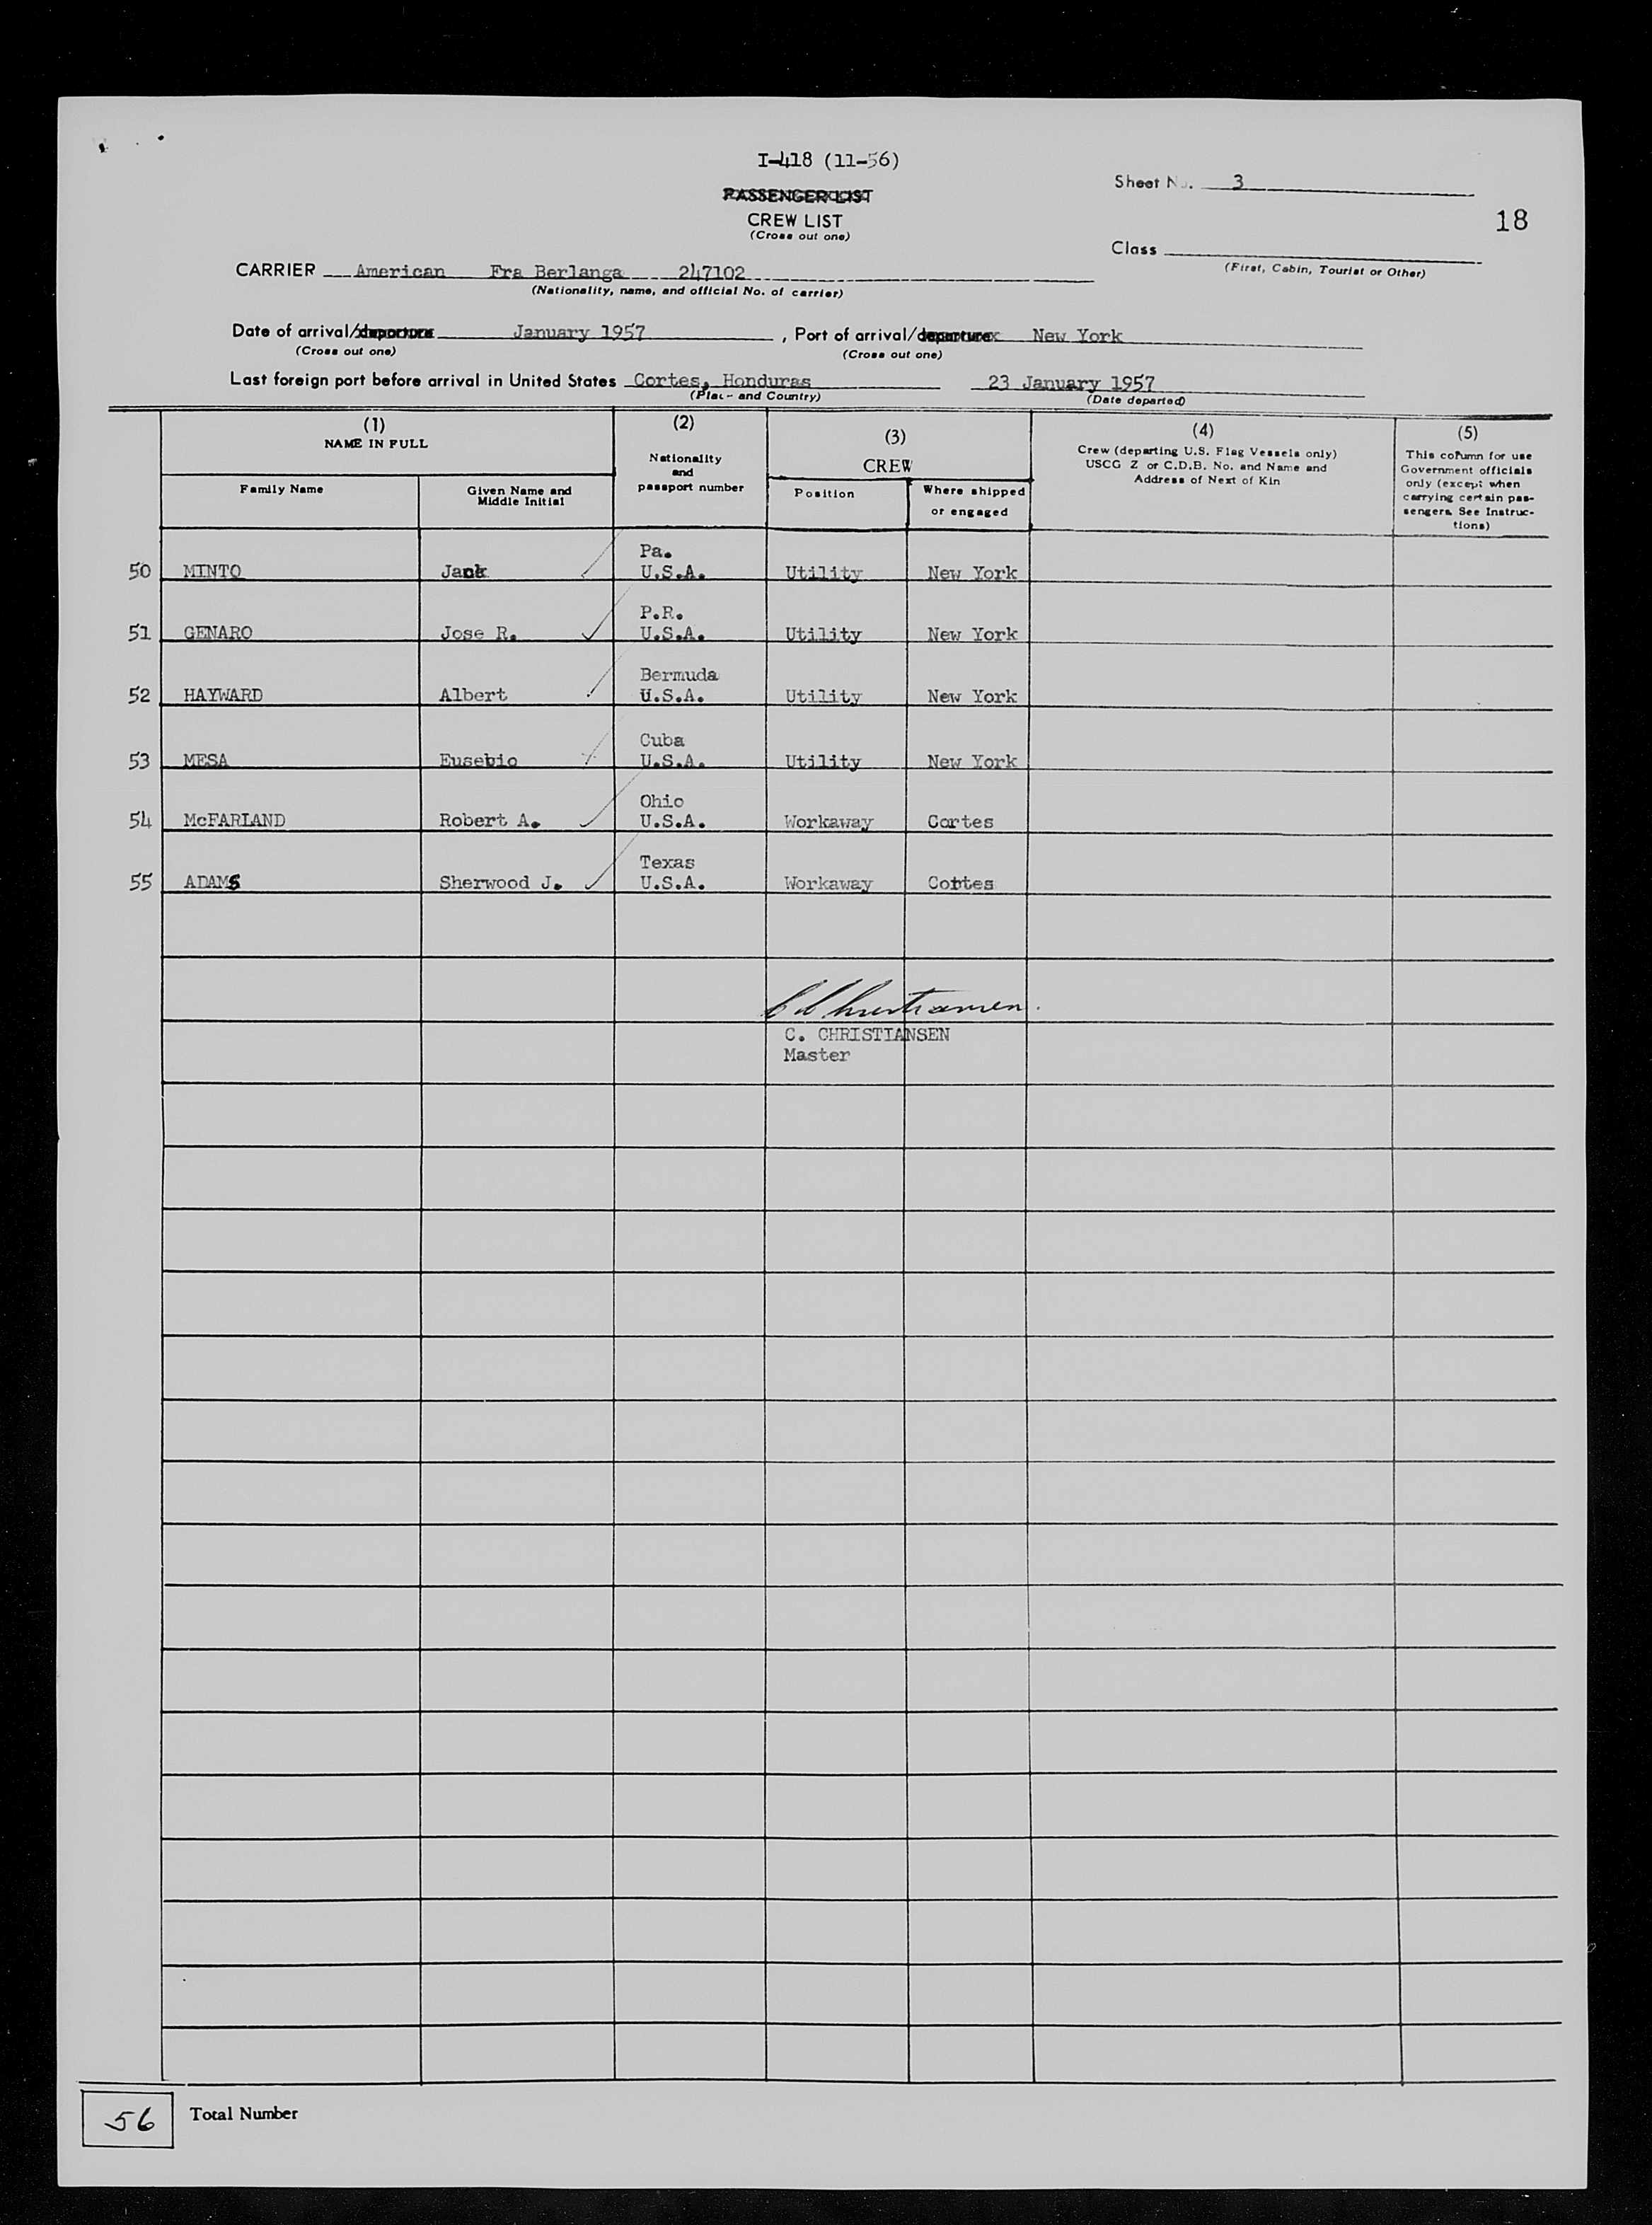 I-418 (11-56)
PASSENGER LIST
CREW LIST
(Cross out one)
Sheet No. 3
18
Class
(First, Cabin, Tourist or Other)
CARRIER American Fra Berlanga 247102
(Nationality, name, and official No. of carrier)
Date of arrival/departure January 1957, Port of arrival/departure New York
(Cross out one) (Cross out one)
Last foreign port before arrival in United States Cortes, Honduras 23 January 1957
(Place and Country) (Date departed)
(1)
NAME IN FULL
Family Name
Given Name and
Middle Initial
(2)
Nationality
and
passport number
(3)
CREW
Position
Where shipped
or engaged
(4)
Crew (departing U.S. Flag Vessels only)
USCG Z or C.D.B. No. and Name and
Address of Next of Kin
(5)
This column for use
Government officials
only (except when
carrying certain pas-
sengers. See Instruc-
tions)
Pa.
50 MINTO Jack U.S.A. Utility New York
P.R.
51 GENARO Jose R. U.S.A. Utility New York
Bermuda
52 HAYWARD Albert U.S.A. Utility New York
Cuba
53 MESA Eusebio U.S.A. Utility New York
Ohio
54 McFARLAND Robert A. U.S.A. Workaway Cortes
Texas
55 ADAMS Sherwood J. U.S.A. Workaway Cottes
C. CHRISTIANSEN
Master
56 Total Number